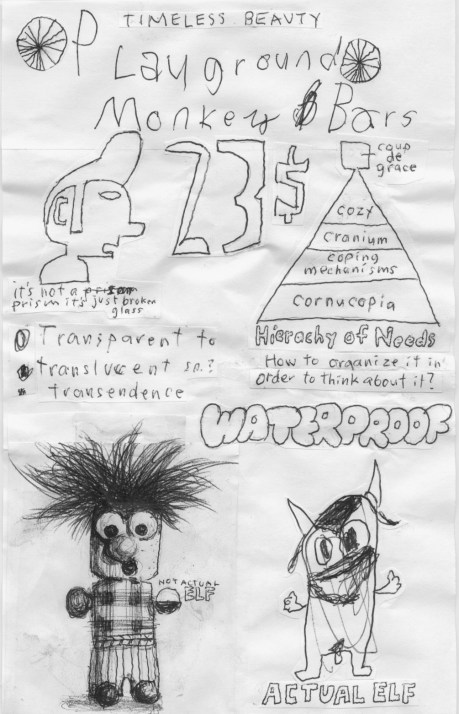 TIMELESS BEAUTY
Playground
Monkey $ Bars
23$
coup
de
grace
cozy
Cranium
coping
mechanisms
cornucopia
Hierachy of Needs
it's not a
prism it's just broken
glass
Transparent to
translucent sp.?
transendence
How to organize it in
order to think about it?
WATERPROOF
NOT ACTUAL
ELF
ACTUAL ELF